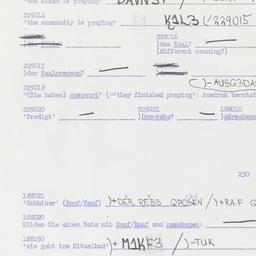 'the kaal is praying' DAVN3T
229014
'the community is praying' K1L3 (/229015
229016
)das Kaal?
(different meaning?)
229017
)der Kaalsrausen?
( )-AUSG3DA
229019
"(Sie haben) ausgeort" (='they finished praying': Ausdruck benutzt
229020 229021 188010
'Predigt' )Droosche? )Gärschens
230
188021
'Rabbiner' (Roof/Raaf) )+DER REBB QPOSEN / )+RA.F G
188020
Bilden Sie einen Satz mit Roof/Raaf und
188030
'sie geht ins Ritualbad' )+ M1K F3 / )-TUK